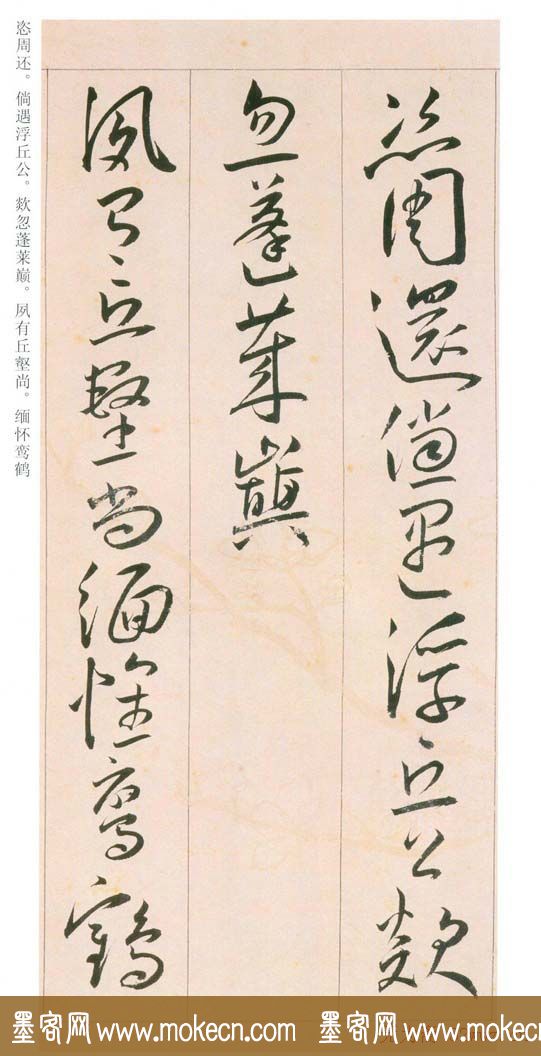 恣周還倘遇浮丘公欻
忽蓬莱巔
夙有丘壑尚緬懷鸾鶴
恣周还。倘遇浮丘公。欻忽蓬莱巅。夙有丘壑尚。缅怀鸾鹤
墨客网 www.mokecn.com 墨客网 www.mokecn.com